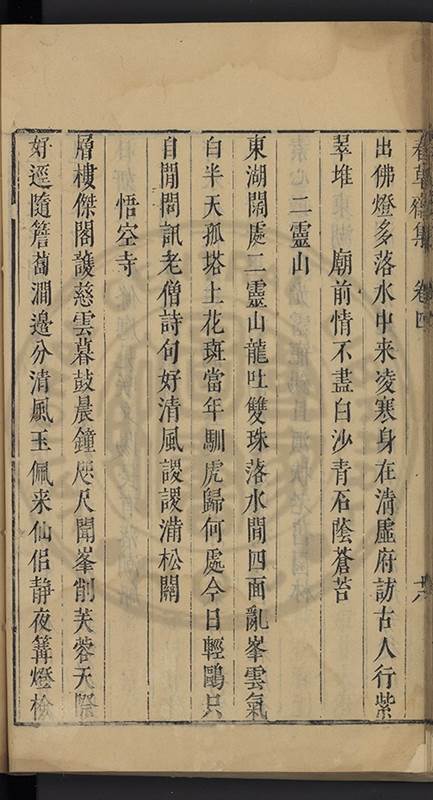 春草齋集 卷四 六
出佛燈多落水中来凌寒身在清虛府訪古人行紫
翠堆 廟前情不盡白沙青石蔭蒼苔
二靈山
東湖闊處二靈山龍吐雙珠落水間四面亂峯雲氣
白半天孤塔土花斑當年馴虎歸何處今日輕鷗只
自閒問訊老僧詩句好清風謖謖满松關
悟空寺
層樓傑閣護慈雲暮鼓晨鐘咫尺聞峯削芙蓉天際
好逕隨簷蔔澗邊分清風玉佩来仙侣靜夜篝燈檢